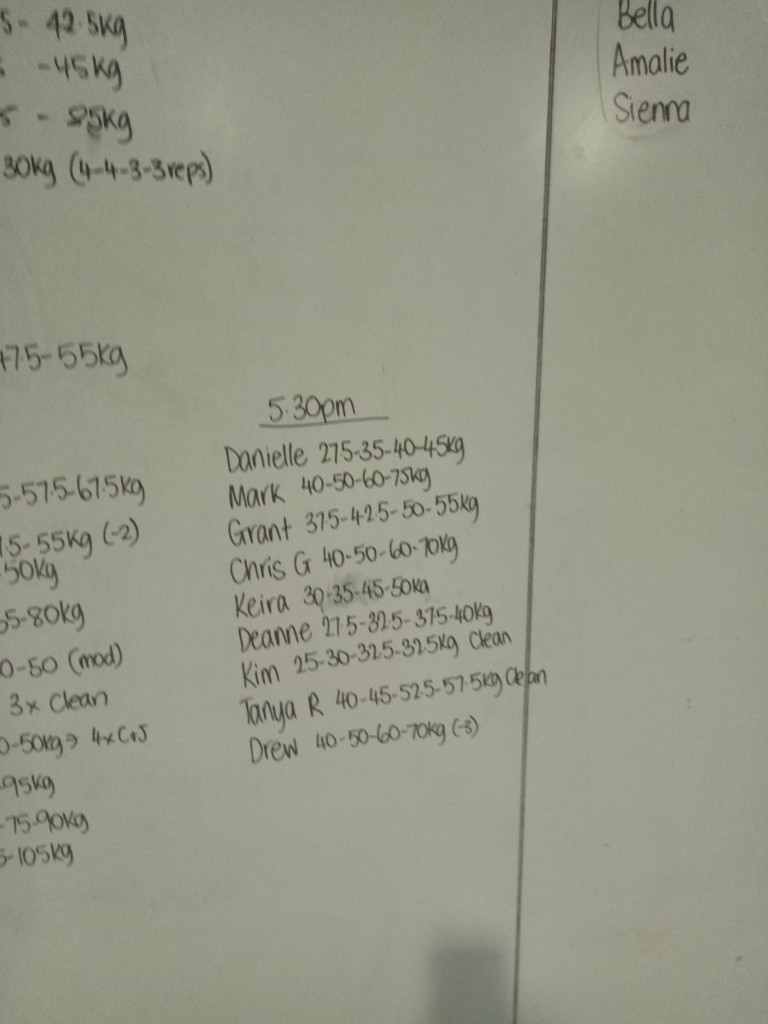 5- 42.5kg
-45kg
5 - 85kg
30kg (4-4-3-3reps)
Bella
Amalie
Sienna
47.5-55kg
5-57.5-67.5kg
7.5-55kg (-2)
-50kg
65-80kg
0-50 (mod)
3x Clean
0-50kg → 4xC+J
-95kg
-75-90kg
5-105kg
5.30pm
Danielle 27.5-35-40-45kg
Mark 40-50-60-75kg
Grant 37.5-42.5-50-55kg
Chris G 40-50-60-70kg
Keira 30-35-45-50kg
Deanne 27.5-32.5-37.5-40kg
Kim 25-30-32.5-32.5kg Clean
Tanya R 40-45-52.5-57.5kg Clean
Drew 40-50-60-70kg (-3)